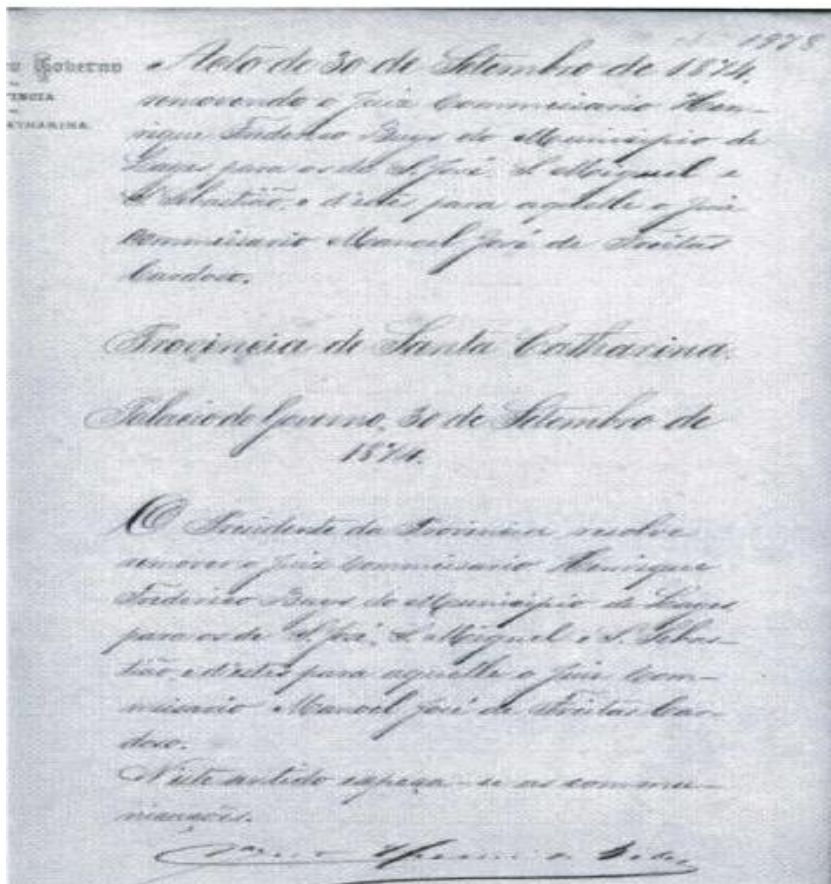 1978
Governo
VINCIA
CATHARINA.
Acto de 30 de Setembro de 1874,
removendo o Juiz Commissario Hen-
rique Frederico Buys do Municipio de
Lages para os de S. José, S. Miguel e
S. Sebastião, e d'estes para aquelle o Juiz
commissario Manoel José de Freitas
Cardoso.
Provincia de Santa Catharina.
Palacio do Governo, 30 de Setembro de
1874.
O Presidente da Provincia resolve
remover o Juiz Commissario Henrique
Frederico Buys do Municipio de Lages
para os de S. José, S. Miguel e S. Sebas-
tião, e d'estes para aquelle o Juiz Com-
missario Manoel José de Freitas Car-
doso.
N'este sentido expeça-se as commu-
nicações.